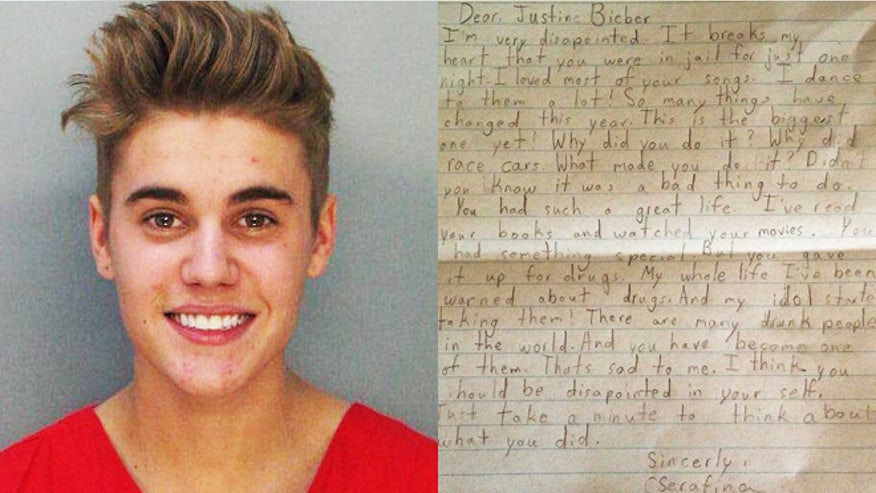 Dear. Justine Bieber
I'm very disapeinted. It breaks my
heart that you were in jail for just one
night. I loved most of your songs. I dance
to them a lot! So many things have
changed this year. This is the biggest
one yet! Why did you do it? Why did
race cars. What made you do it? Didn't
you know it was a bad thing to do.
You had such a great life. I've read
your books and watched your movies. You
had something special But you gave
it up for drugs. My whole life I've been
warned about drugs. And my idol starte
taking them! There are many drunk people
in the world. And you have become one
of them. Thats sad to me. I think you
should be disapointed in your self.
Just take a minute to think about
what you did.
Sincerly,
Serafina